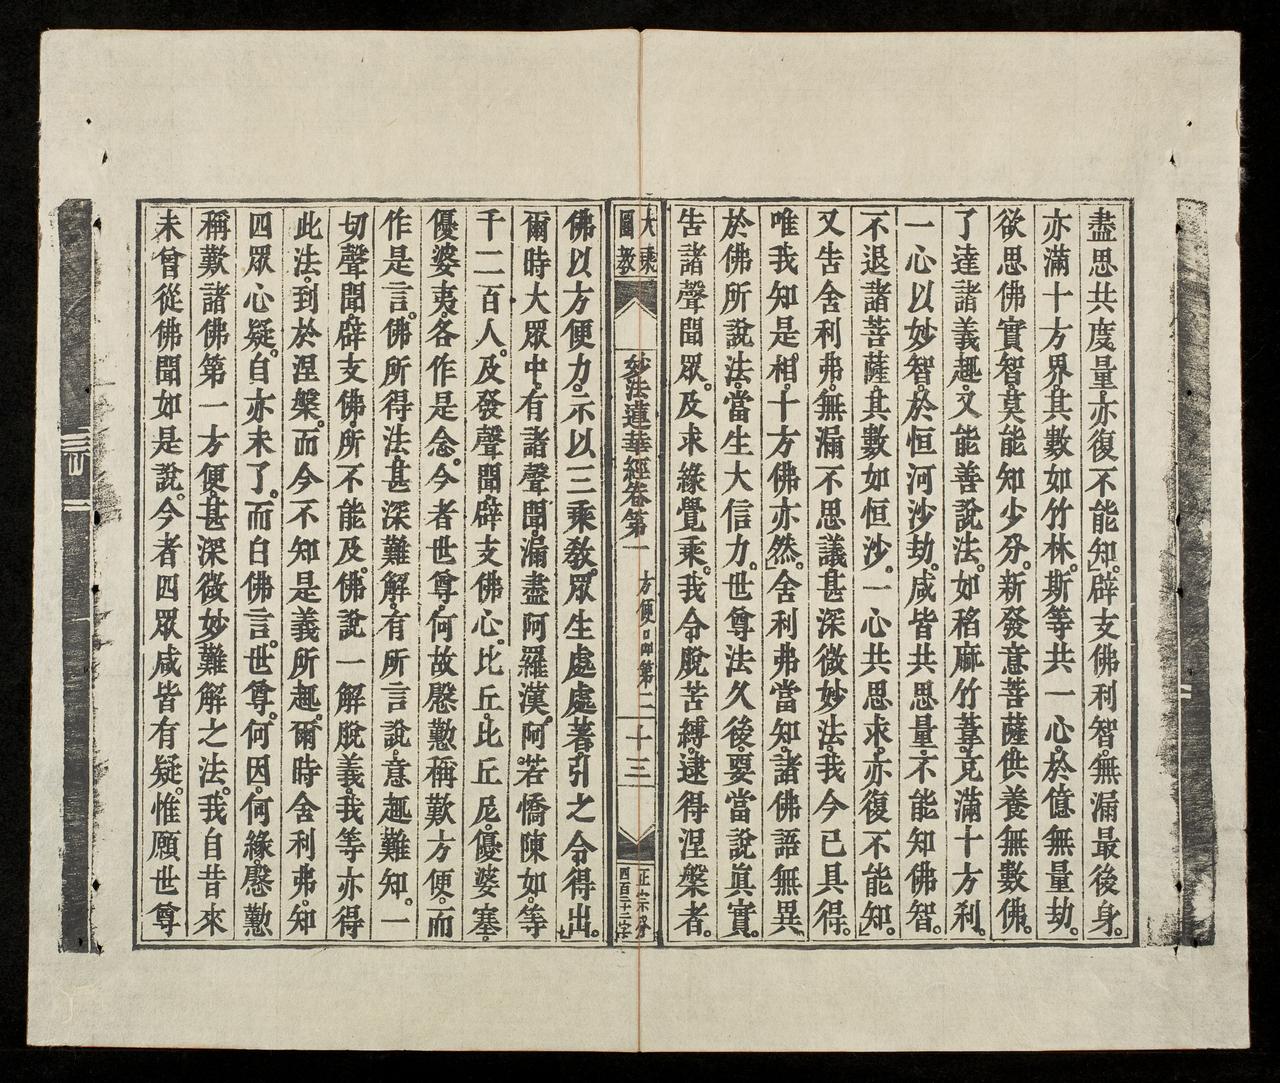 盡思共度量。亦復不能知。辟支佛利智。無漏最後身。
亦滿十方界。其數如竹林。斯等共一心。於億無量劫。
欲思佛實智。莫能知少分。新發意菩薩。供養無數佛。
了達諸義趣。又能善說法。如稻麻竹葦。充滿十方刹。
一心以妙智。於恒河沙劫。咸皆共思量。不能知佛智。
不退諸菩薩。其數如恒沙。一心共思求。亦復不能知。
又告舍利弗。無漏不思議。甚深微妙法。我今已具得。
唯我知是相。十方佛亦然。舍利弗當知。諸佛語無異
於佛所說法。當生大信力。世尊法久後。要當說眞實。
告諸聲聞眾。及求緣覺乘。我令脫苦縛。逮得涅槃者。
大乘
圓教
妙法蓮華經卷第一
方便品第二
十三
正宗分
四百三十二字
佛以方便力。示以三乘教。眾生處處著。引之令得出。
爾時大眾中。有諸聲聞。漏盡阿羅漢。阿若憍陳如。等
千二百人。及發聲聞。辟支佛心。比丘。比丘尼。優婆塞。
優婆夷。各作是念。今者世尊。何故慇懃稱歎方便。而
作是言。佛所得法。甚深難解。有所言說。意趣難知。一
切聲聞。辟支佛。所不能及。佛說一解脫義。我等亦得
此法。到於涅槃。而今不知是義所趣。爾時舍利弗。知
四眾心疑。自亦未了。而白佛言。世尊。何因。何緣。慇懃
稱歎諸佛第一方便。甚深微妙難解之法。我自昔來
未曾從佛聞如是說。今者四眾咸皆有疑。惟願世尊